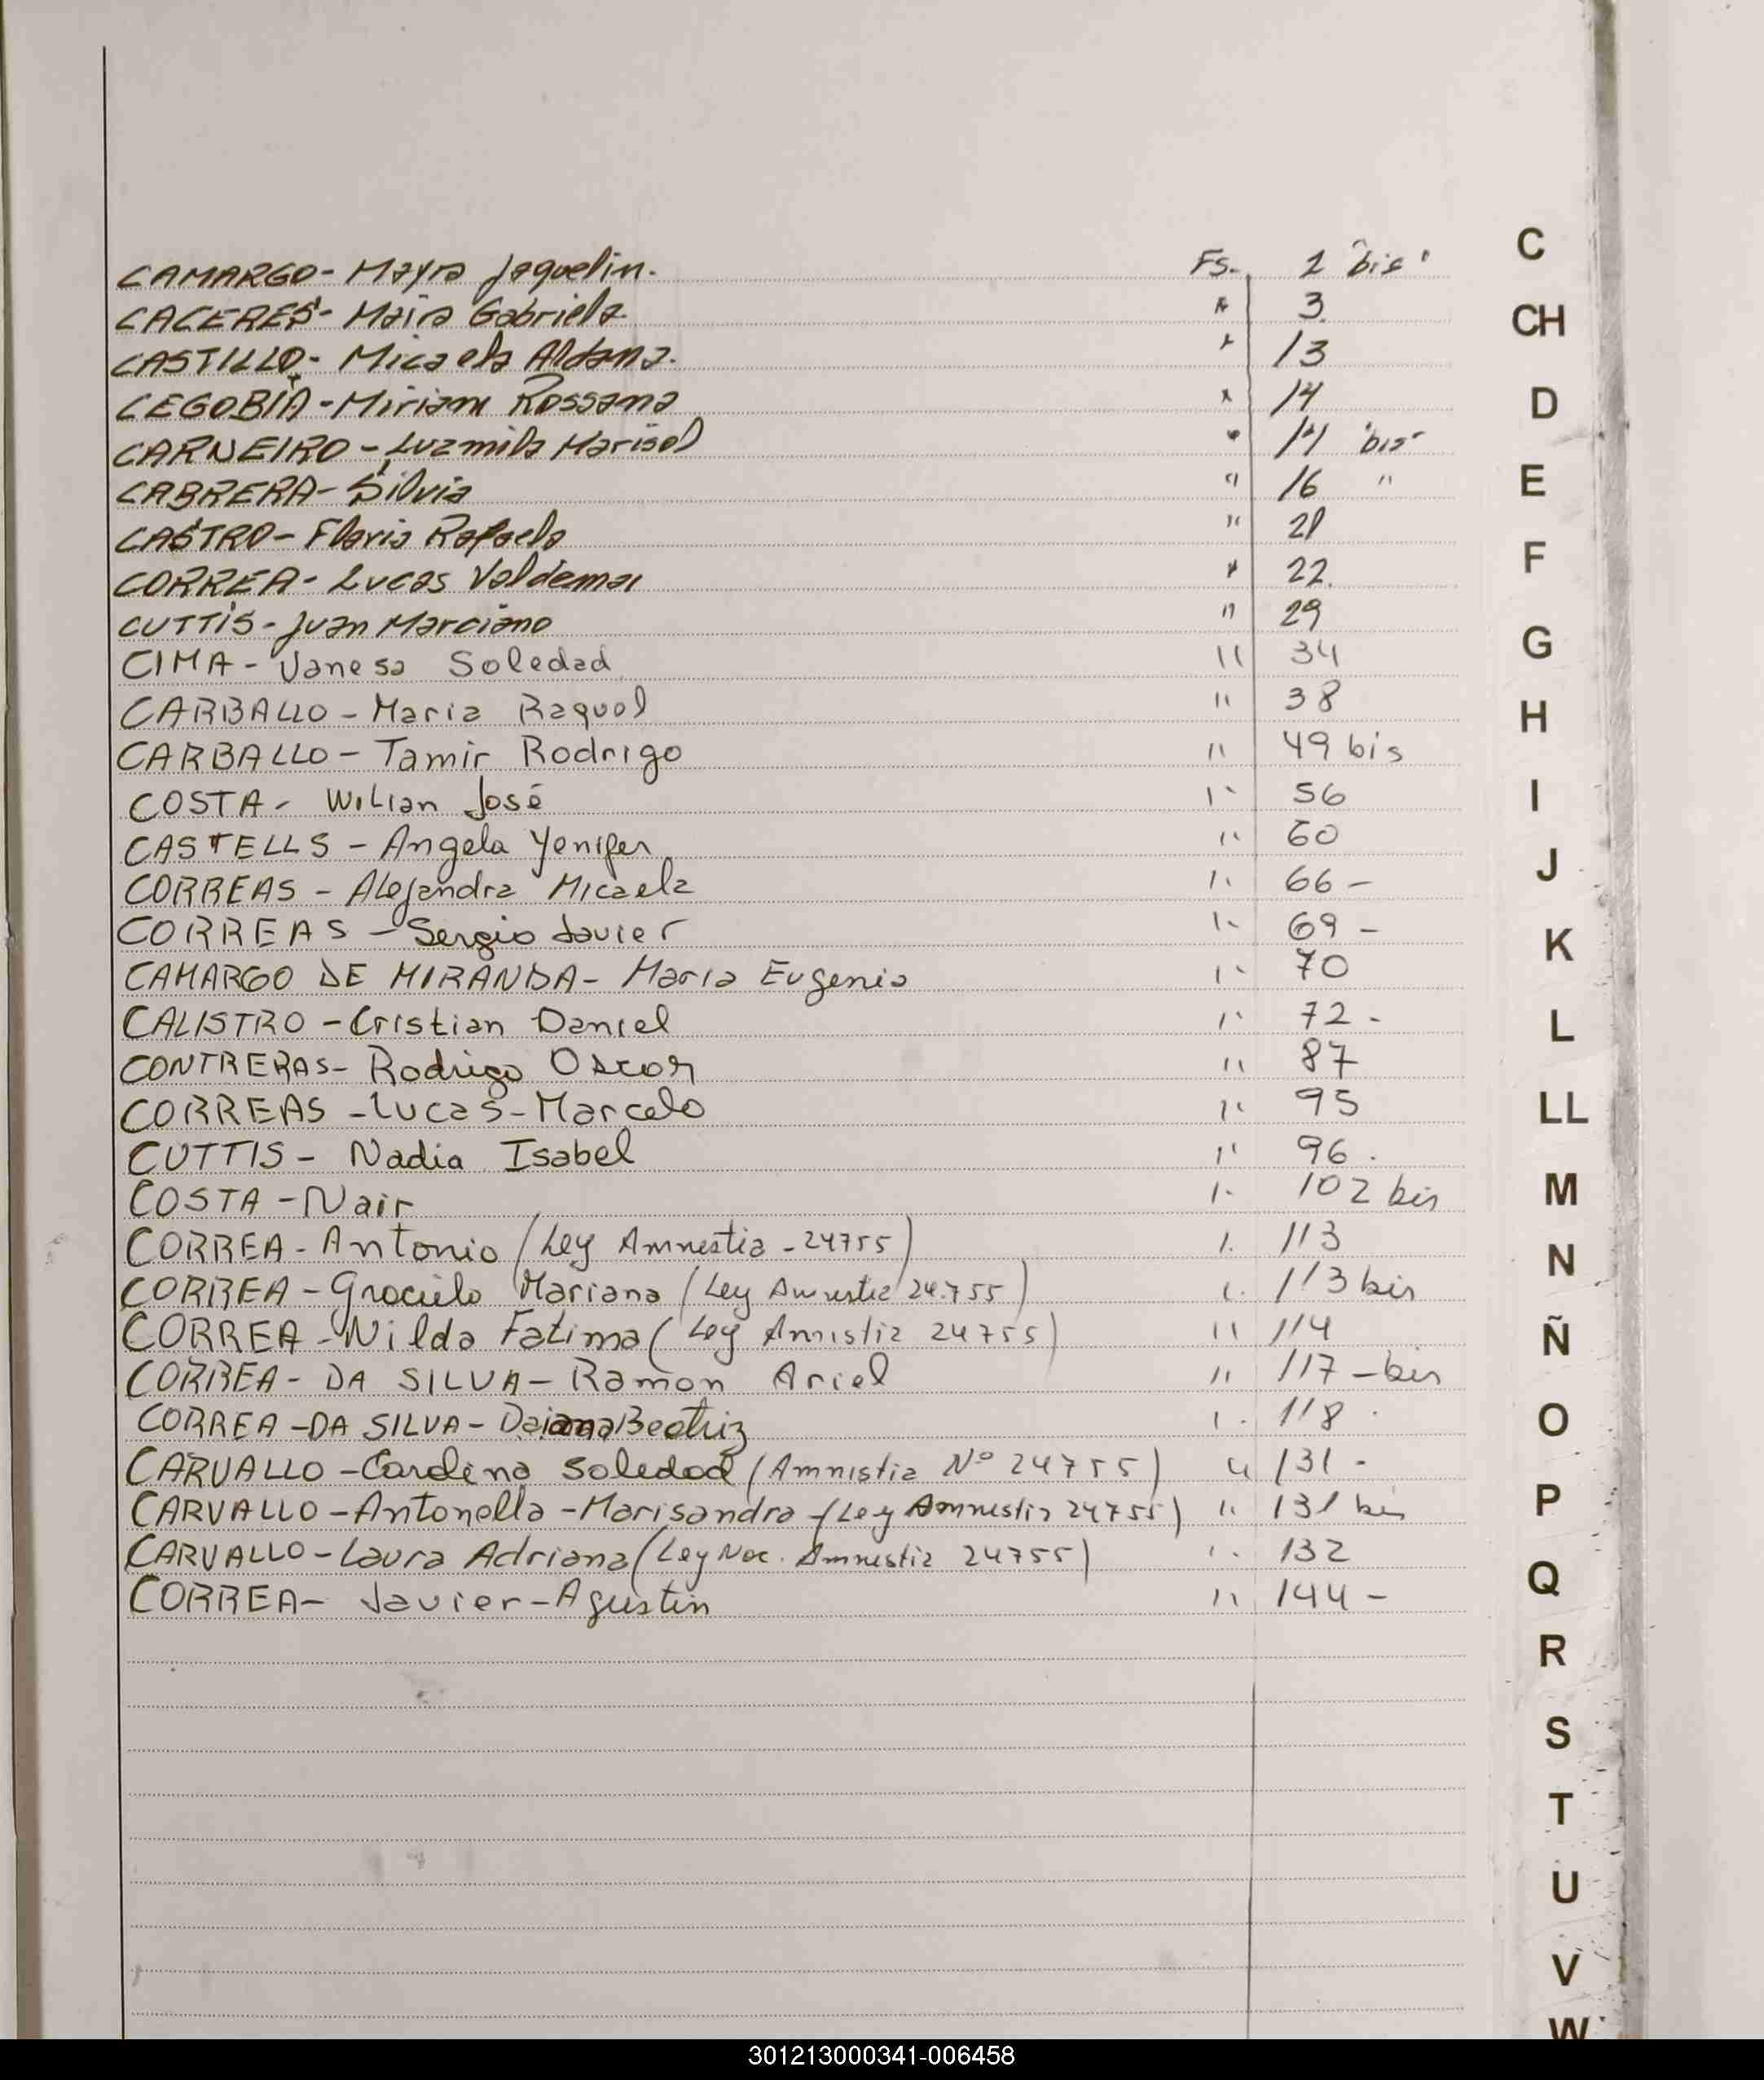 CAMARGO- Mayra Jaquelin. Fs. 2 "bis"
CACERES- Maira Gabriela. " 3
CASTILLO- Micaela Aldana. " 13
CEGOBIA-Miriam Rossana " 14
CARNEIRO-Luzmila Marisol " 14 "bis"
CABRERA-Silvia " 16 "
CASTRO- Flavia Rafaela " 21
CORREA- Lucas Valdemar " 22.
CUTTIS-Juan Marciano " 29
CIMA- Vanesa Soledad " 34
CARBALLO - Maria Raquel " 38
CARBALLO- Tamir Rodrigo " 49 bis
COSTA- Wilian José " 56
CASTELLS - Angela Yenifer " 60
CORREAS - Alejandra Micaela " 66 -
CORREAS - Sergio Javier " 69 -
CAMARGO DE MIRANDA- Maria Eugenia " 70
CALISTRO -Cristian Daniel " 72 -
CONTRERAS- Rodrigo Oscar " 87
CORREAS -Lucas-Marcelo " 95
CUTTIS- Nadia Isabel " 96.
COSTA -Nair " 102 bis
CORREA- Antonio (Ley Amnestia - 24755) " 113
CORREA -Graciela Mariana (Ley Amnestia 24.755) " 113 bis
CORREA -Nilda Fatima (Ley Amistia 24755) " 114
CORREA- DA SILVA- Ramon Ariel " 117 -bis
CORREA -DA SILVA- Daiana Beatriz " 118
CARVALLO -Carolina Soledad (Amnistia Nº 24755) " 131 -
CARVALLO -Antonella -Marisandra -(Ley Amnestia 24755) " 131 bis
CARVALLO-Laura Adriana (Ley Nac. Amnestia 24755) " 132
CORREA- Javier-Agustin " 144 -
C
CH
D
E
F
G
H
I
J
K
L
LL
M
N
Ñ
O
P
Q
R
S
T
U
V
W
301213000341-006458